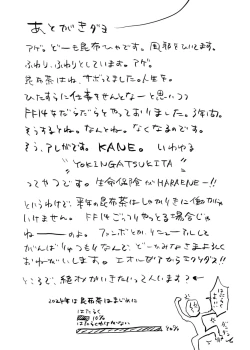 あとがきダヨ
アゲ。どーも昆布ひゃです。風邪をひいてます。
ふわり、ふわりとしています。アゲ。
昆布茶はね、サボってました。人生を。
ひたすらに仕事をせんとなーと思いつつ
FF14をだらだらとやっておりました。3年間。
そうするとね。なんとね。なくなるのです。
そう、アレがです。KANE。いわゆる
"YOKINGATSUKITA"
ってやつです。生命保険がHARAENEー!!
というわけで、来年の昆布茶はしっかりきに働かねば
いけません。FF14どっぷりやっとる場合じゃ
ねーーーのよ。ファンボとか、リニューアルして
がんばりゃっもんなんで、どーかみなさまよろしく
おねがいします。エオルゼアからモクンダ!!
ところで、絶オメガいきたいって人います?←
2024年は昆布茶はまじめに
はたらく
10%
はたらかなければならない
90%
はたらけ